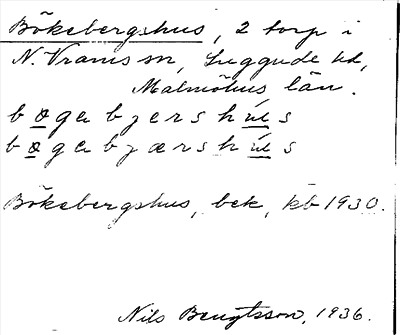 Bökebergshus, 2 torp i
N. Vrams sn, Luggude hd,
Malmöhus län.
b ø g a b j e r s h u s
b ø g a b j æ r s h u s
Bökebergshus, bek, kb 1930.
Nils Bengtsson, 1936.